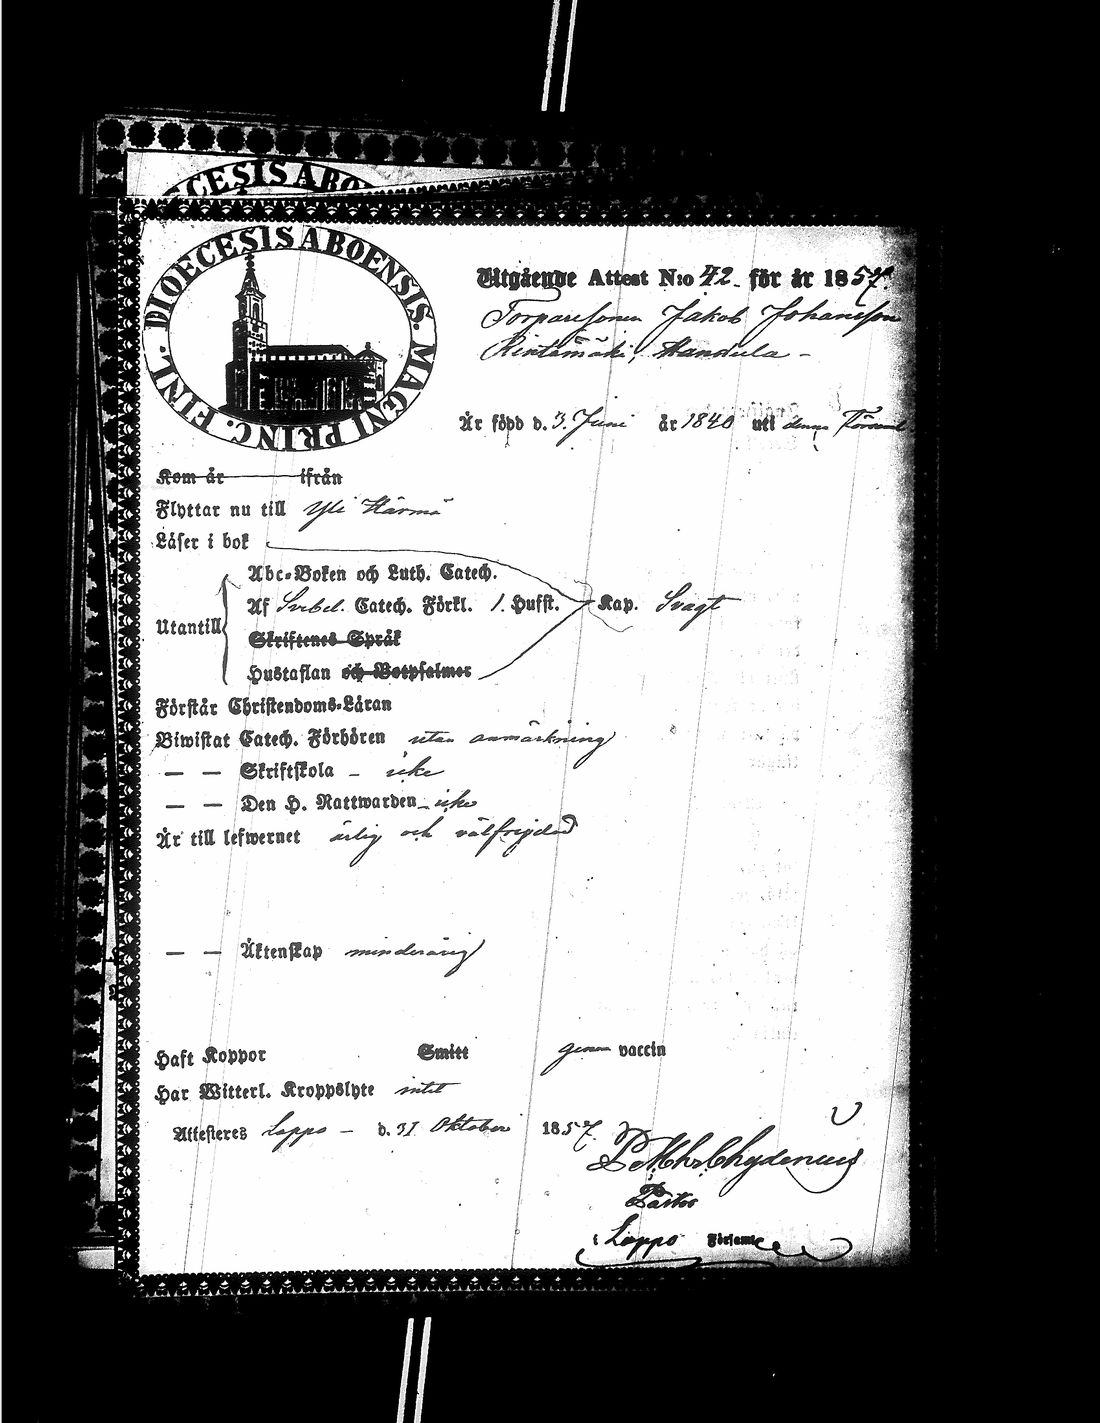 ŒCESIS ABO
DIOECESIS ABOENSIS. MAGNI PRINC. FINL.
Utgående Attest N:o 42. för år 1857.
Torparesonen Jakob Johansson
Rintamäki,
Är född d. 3. Juni år 1840 uti denna Församl
Kom år ifrån
Flyttar nu till Yli Härmä
Läser i bok
Abc-Boken och Luth. Catech.
Af Svebel. Catech. Förkl. 1. Husst. Kap. Svagt
Utantill
Skriftenes Språk
Hustaflan och Botpsalmer
Förstår Christendoms-Läran
Biwistat Catech. Förhören utan anmärkning
— — Skriftskola – icke
— — Den H. Nattwarden – icke
Är till lefwernet ärlig och välfrejdad
— — Äktenskap minderårig
Haft Koppor Smitt genom vaccin
Har Witterl. Kroppslyte intet
Attesteres Lappo – d. 31 Oktober 1857.
Chydenius
Pastor
i Lappo Församl